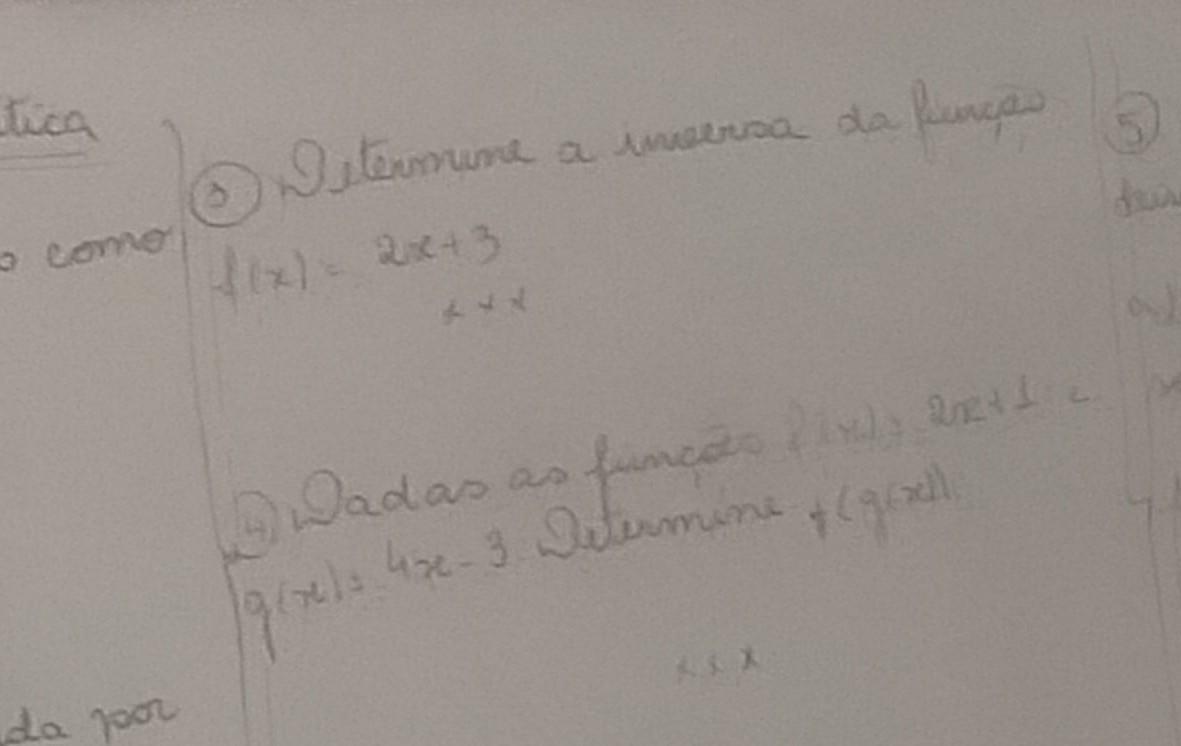 tica
o como
da por
3 Determine a inversa da função
f(x) = 2x+3
x x x
4) Dadas as função f(x) = 2x+1 e
g(x) = 4x-3. Determine f(g(x)).
x x x
5